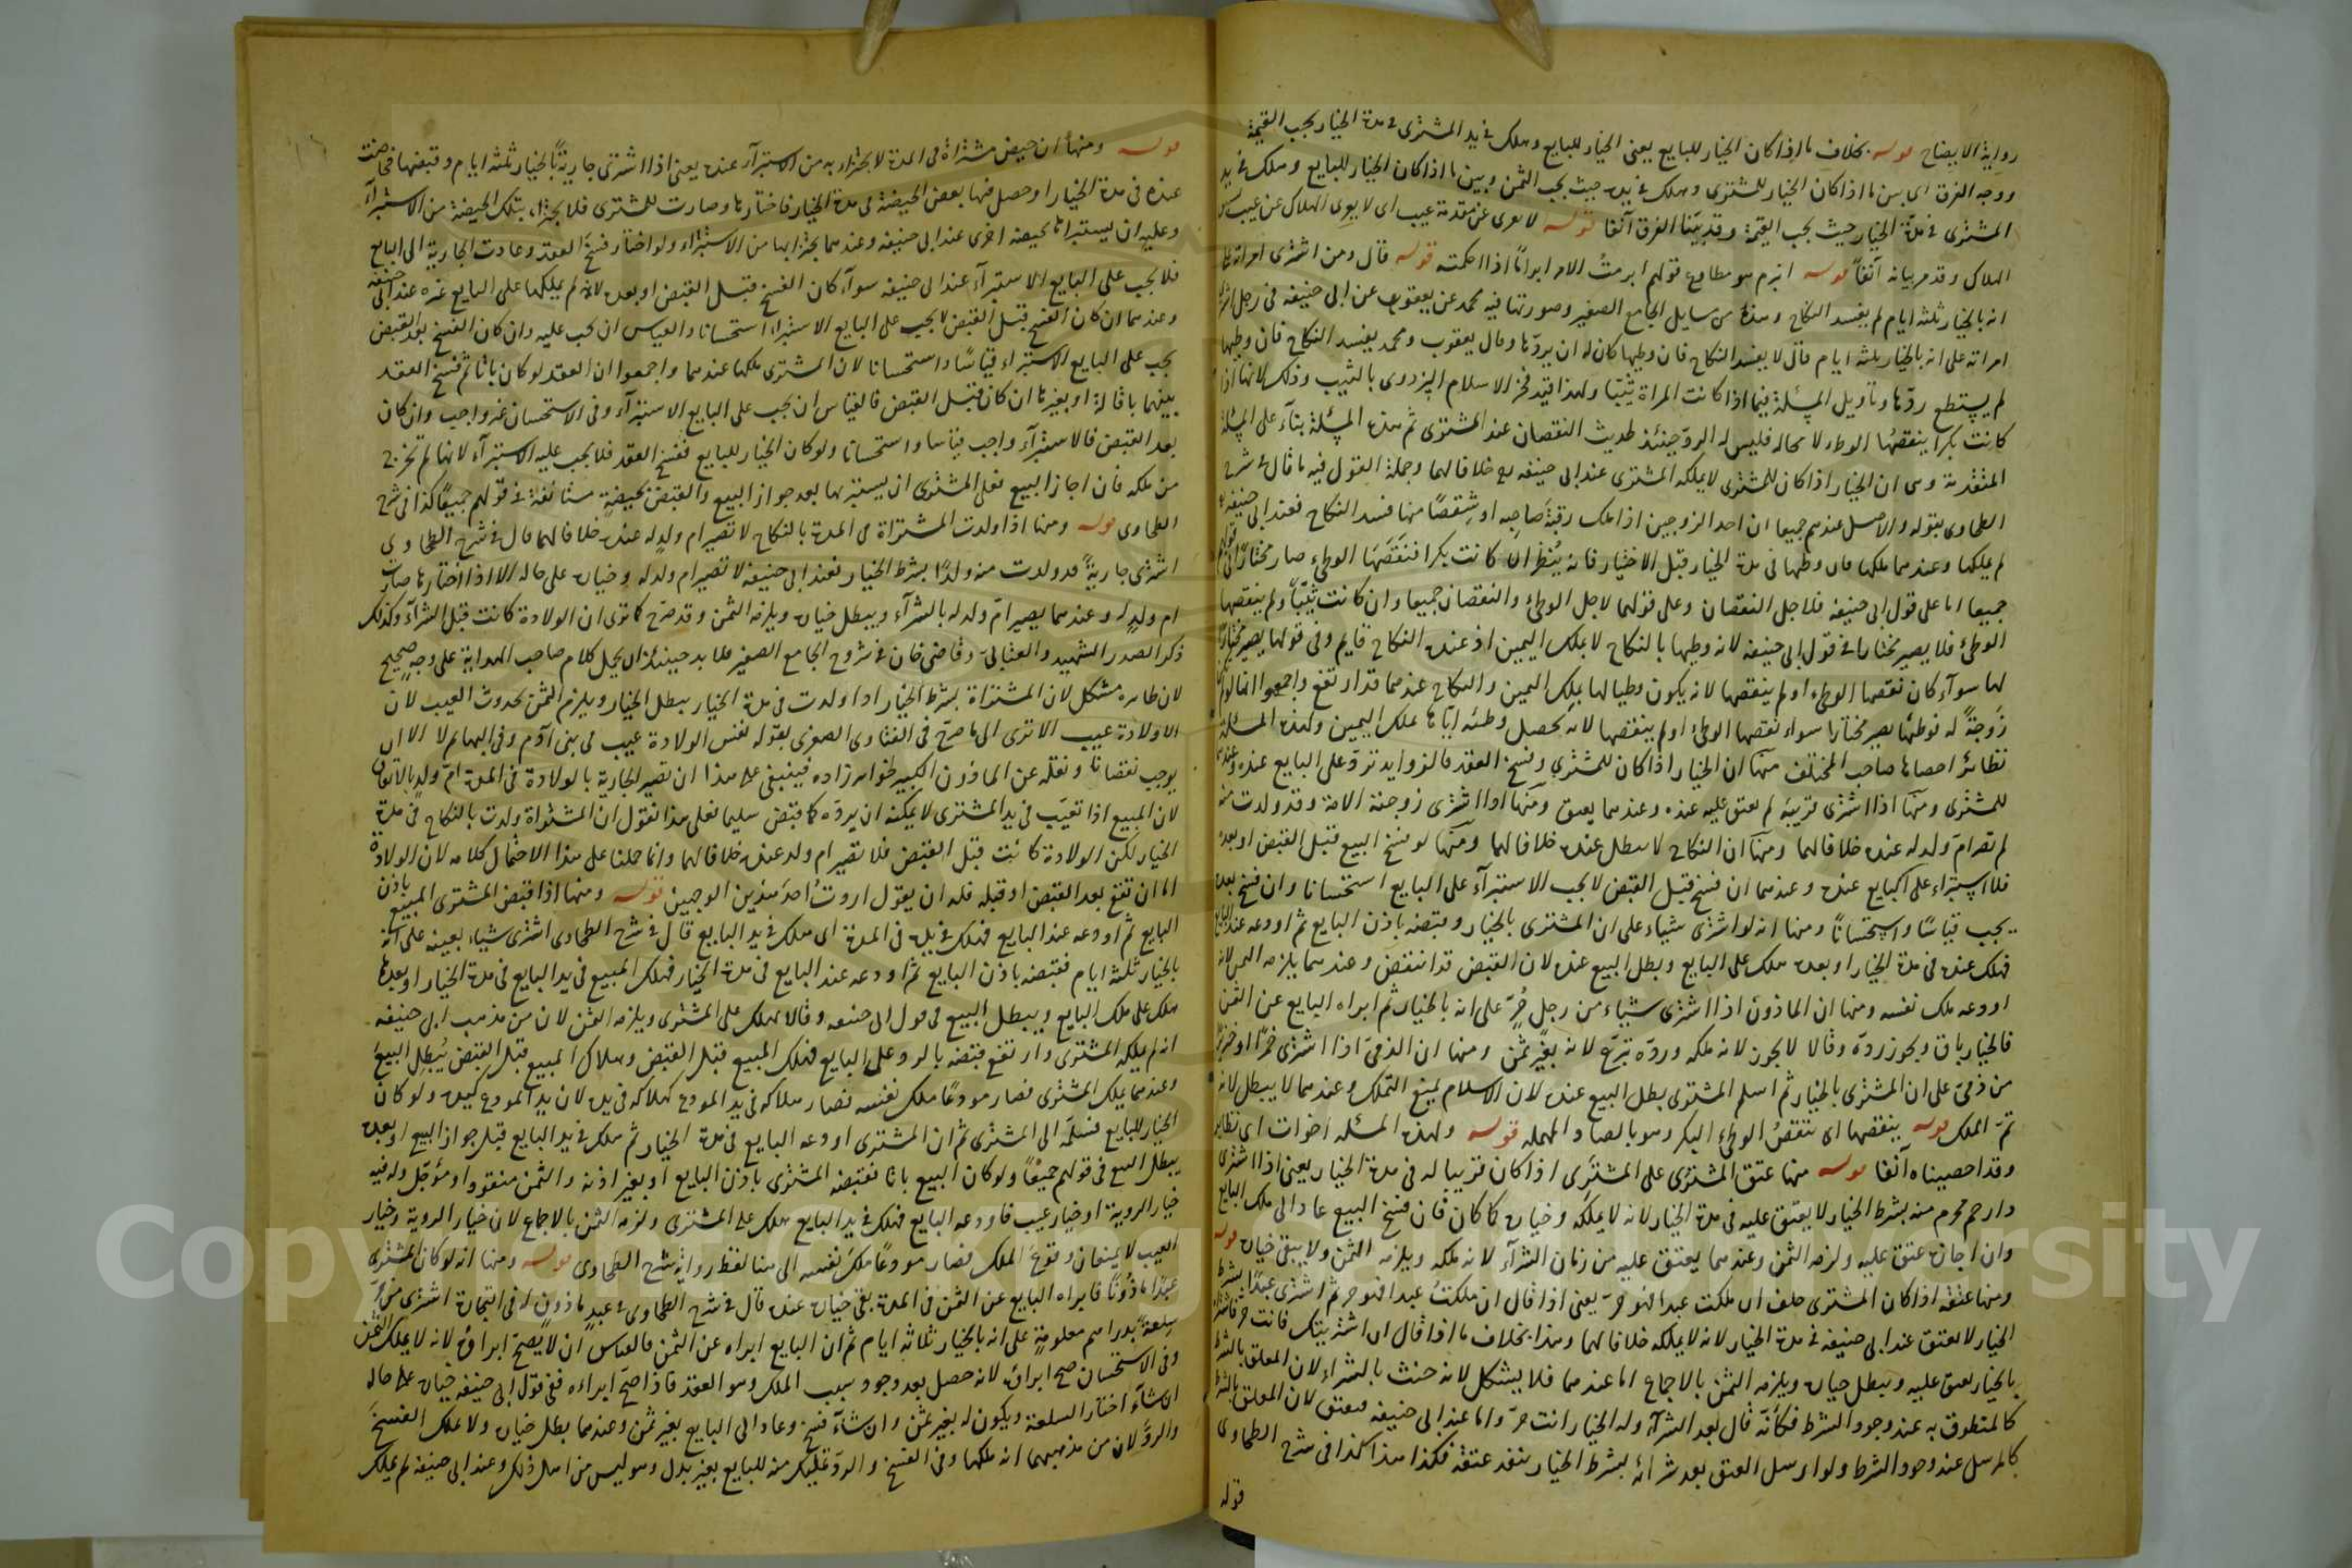 رواية الايضاح قوله بخلاف ما اذا كان الخيار للبايع يعني الخيار للبايع وهلك في يد المشترى في مدة الخيار يجب القيمة
ووجه الفرق اى بين ما اذا كان الخيار للمشترى وهلك في يده حيث يجب الثمن وبين ما اذا كان الخيار للبايع وهلك في يد
المشترى في مدة الخيار حيث يجب القيمة وقد بيّنا الفرق آنفا قوله لا يعرى عن مقدمة عيب اى لا يعرى الهلاك عن عيب
الهلاك وقد مر بيانه آنفاً قوله انبرم هو مطاوع قولهم ابرمتُ الامر ابراماً اذا احكمته قوله قال ومن اشترى امراته على
انه بالخيار ثلثة ايام لم يفسد النكاح وهذه من مسايل الجامع الصغير وصورتها فيه محمد عن يعقوب عن ابي حنيفة في رجل اشترى
امراته على انه بالخيار ثلثة ايام قال لا يفسد النكاح فان وطيها كان له ان يردّها وقال يعقوب ومحمد يفسد النكاح فان وطيها
لم يستطع ردّها وتاويل المسئلة فيما اذا كانت المراة ثيّبا ولهذا قيّد فخر الاسلام البزدوى بالثيب وذلك لانها اذا
كانت بكرا ينقصها الوطء لا محالة فليس له الردّ حينئذ لحديث النقصان عند المشترى ثم هذه المسئلة بناءً على المسئلة
المتقدمة وهى ان الخيار اذا كان للمشترى لا يملكه المشترى عند ابي حنيفة خلافا لهما وجملة القول فيه ما قال في شرح
الطحاوى بقوله والاصل عندهم جميعا ان احد الزوجين اذا ملك رقبة صاحبه او شِقصًا منها فسد النكاح فعند ابي حنيفة
لم يملكها وعندهما ملكها فان وطئها في مدة الخيار قبل الاختيار فانه يُنظر ان كانت بكرا فنقصَهَا الوطىء صار مختارًا في
جميعا اما على قول ابي حنيفة فلاجل النقصان وعلى قولهما لاجل الوطىء والنقصان جميعا وان كانت ثيّباً ولم ينقصها
الوطىء فلا يصير مختارا في قول ابي حنيفة لانه وطيها بالنكاح لا بملك اليمين اذ عنده النكاح قايم وفي قولهما يصير مختارًا
لها سواء كان نقصها الوطىء او لم ينقصها لانه يكون وطيا لها بملك اليمين والنكاح عندهما قد ارتفع واجمعوا انها لو لم تكن
زَوجةً له فوطئها يصير مختارا سواء نقصها الوطىء او لم ينقصها لانه يحصل وطئه ايّاها بملك اليمين ولهذه المسئلة
نظائر احصاها صاحب المختلف منها ان الخيار اذا كان للمشترى وفسخ العقد فالزوايد تردّ على البايع عنده وعندهما
للمشترى ومنها اذا اشترى قريبَه لم يعتق عليه عنده وعندهما يعتق ومنها اذا اشترى زوجته الامة وقد ولدت منه
لم تصر امّ ولد له عنده خلافا لهما ومنها ان النكاح لا يبطل عنده خلافا لهما ومنها لو فسخ البيع قبل القبض او بعده
فلا استبراء على البايع عنده وعندهما ان فسخ قبل القبض لا يجب الاستبراء على البايع استحسانا وان فسخ بعده
يجب قياسًا واستحسانًا ومنها انه لو اشترى شياء على ان المشترى بالخيار وقبضه باذن البايع ثم اودعه عند البايع
فهلك عنده في مدة الخيار او بعده هلك على البايع وبطل البيع عنده لان القبض قد انتقض وعندهما يلزمه الثمن لانه
اودعه ملك نفسه ومنها ان الماذون اذا اشترى شياء من رجل حُرّ على انه بالخيار ثم ابراه البايع عن الثمن
فالخيار باق ويجوز ردّه وقالا لا يجوز لانه ملكه وردّه تبرّع لانه بغير ثمن ومنها ان الذميّ اذا اشترى خمرًا او خنزيرًا
من ذمّى على ان المشترى بالخيار ثم اسلم المشترى بطل البيع عنده لان الاسلام يمنع التملك وعندهما لا يبطل لانه
تمّ الملك قوله ينقصها اى تنقصُ الوطىء البكر وهو بالصاد المهملة قوله ولهذه المسئلة اخوات اى نظاير
وقد احصيناه آنفا قوله منها عتق المشترَى على المشترِى اذا كان قريبا له في مدة الخيار يعنى اذا اشترى
ذا رحم محرم منه بشرط الخيار لا يعتق عليه في مدة الخيار لانه لا يملكه وخياره كما كان فان فسخ البيع عاد الى ملك البايع
وان اجازه عتق عليه ولزمه الثمن وعندهما يعتق عليه من زمان الشراء لانه ملكه ويلزمه الثمن ولا يبقى خياره قوله
ومنها عتقه اذا كان المشترى حلف ان ملكت عبدا فهو حرّ يعنى اذا قال ان ملكتُ عبدا فهو حر ثم اشترى عبدًا بشرط
الخيار لا يعتق عند ابي حنيفة في مدة الخيار لانه لا يملكه خلافا لهما وهذا بخلاف ما اذا قال ان اشتريتك فانت حر فاشتراه
بالخيار يعتق عليه وبطل خياره ويلزمه الثمن بالاجماع اما عندهما فلا يشكل لانه حنث بالشراء لان المعلق بالشرط
كالمنطوق به عند وجود الشرط فكأنّه قال بعد الشراء وله الخيار انت حرّ واما عند ابي حنيفة فيعتق لان المعلق بالشرط
كالمرسل عند وجود الشرط ولو ارسل العتق بعد شرائه بشرط الخيار ينفذ عتقه فكذا هذا كذا في شرح الطحاوى
قوله
قوله ومنها ان حيض مشتراة في المدة لا يجتزاء به من الاستبراء عنده يعنى اذا اشترى جاريةً بالخيار ثلثة ايام وقبضها فحاضت
عنده في مدة الخيار او حصل فيها بعض الحيضة في مدة الخيار فاختارها وصارت للمشترى فلا يجتزاء بتلك الحيضة من الاستبراء
وعليه ان يستبرأها بحيضة اخرى عند ابي حنيفة وعندهما يجتزأ بها من الاستبراء ولو اختار فسخَ العقد وعادت الجارية الى البايع
فلا يجب على البايع الاستبراء عند ابي حنيفة سواء كان الفسخ قبل القبض او بعده لانه لم يملكها على البايع غيره عند ابي حنيفة
وعندهما ان كان الفسخ قبل القبض لا يجب على البايع الاستبراء استحسانا والقياس ان يجب عليه وان كان الفسخ بعد القبض
يجب على البايع الاستبراء قياسًا واستحسانا لان المشترى ملكها عندهما واجمعوا ان العقد لو كان باتا ثم فسخ العقد
بينهما باقالة او بغيرها ان كان قبل القبض فالقياس ان يجب على البايع الاستبراء وفى الاستحسان غير واجب وان كان
بعد القبض فالاستبراء واجب قياسا واستحسانا ولو كان الخيار للبايع ففسخ العقد فلا يجب عليه الاستبراء لانها لم تخرج
من ملكه فان اجاز البيع فعلى المشترى ان يستبرئها بعد جواز البيع والقبض بحيضة مستانفة في قولهم جميعًا كذا في شرح
الطحاوى قوله ومنها اذا ولدت المشتراة في المدة بالنكاح لا تصير ام ولد له عنده خلافا لهما قال في شرح الطحاوى
اشترى جاريةً قد ولدت منه ولدًا بشرط الخيار فعند ابي حنيفة لا تصير ام ولد له وخياره على حاله الا اذا اختارها صارت
ام ولد له وعندهما يصير امّ ولد له بالشراء ويبطل خياره ويلزمه الثمن وقد صرّح كما ترى ان الولادة كانت قبل الشراء وكذلك
ذكر الصدر الشهيد والعتّابى وقاضى خان في شروح الجامع الصغير فلا بد حينئذ ان يحمل كلام صاحب الهداية على وجه صحيح
لان ظاهره مشكل لان المشتراة بشرط الخيار اذا ولدت في مدة الخيار يبطل الخيار ويلزم الثمن بحدوث العيب لان
الولادة عيب الا ترى الى ما صرّح في الفتاوى الصغرى بقوله نفس الولادة عيب في بني آدم وفي البهايم لا الا ان
يوجب نقصانا ونقله عن الماذون الكبير لخواهر زاده فينبغى على هذا ان تصير الجارية بالولادة في المدة امّ ولد بالاتفاق
لان المبيع اذا تعيّب في يد المشترى لا يمكنه ان يردّه كما قبض سليما فعلى هذا نقول ان المشتراة ولدت بالنكاح في مدة
الخيار لكن الولادة كانت قبل القبض فلا تصير ام ولد عنده خلافا لهما وانما حملنا على هذا الاحتمال كلامه لان الولادة
اما ان تقع بعد القبض او قبله فله ان يقول اردتُ احدَ هذين الوجهين قوله ومنها اذا قبض المشترى المبيع باذن
البايع ثم اودعه عند البايع فهلك في يده في المدة اى هلك في يد البايع قال في شرح الطحاوى اشترى شياء بعينه على انه
بالخيار ثلثة ايام فقبضه باذن البايع ثم اودعه عند البايع في مدة الخيار فهلك المبيع في يد البايع في مدة الخيار او بعدها
هلك على ملك البايع ويبطل البيع في قول ابي حنيفة وقالا يهلك على المشترى ويلزمه الثمن لان من مذهب ابي حنيفة
انه لم يملكه المشترى وارتفع قبضه بالرد على البايع فهلك المبيع قبل القبض وهلاك المبيع قبل القبض يُبطِل البيعَ
وعندهما يملك المشترى فصار مودعًا ملك نفسه فصار هلاكه في يد المودع كهلاكه في يده لان يد المودع كيده ولو كان
الخيار للبايع فسلّمه الى المشترى ثم ان المشترى اودعه البايع في مدة الخيار ثم هلك في يد البايع قبل جواز البيع او بعده
يبطل البيع في قولهم جميعًا ولو كان البيع باتا فقبضه المشترى باذن البايع او بغير اذنه والثمن منقود او مؤجّل وله فيه
خيار الروية او خيار عيب فاودعه البايع فهلك في يد البايع هلك على المشترى ولزمه الثمن بالاجماع لان خيار الروية وخيار
العيب لا يمنعان وقوعَ الملك فصار مودعًا ملكَ نفسه الى هنا لفظ رواية شرح الطحاوى قوله ومنها انه لو كان المشترى
عبدًا ماذُونًا فابراه البايع عن الثمن في المدة بقى خياره عنده قال في شرح الطحاوى في عبدٍ ماذون له في التجارة اشترى من حرّ
سلعةً بدراهم معلومةٍ على انه بالخيار ثلاثة ايام ثم ان البايع ابراه عن الثمن فالقياس ان لا يصحّ ابراؤه لانه لا يملك الثمن
وفى الاستحسان صح ابراؤه لانه حصل بعد وجود سبب الملك وهو العقد فاذا صحّ ابراءه ففى قول ابي حنيفة خياره على حاله
ان شاءَ اختار السلعة ويكون له بغير ثمن وان شاءَ فسخ وعاد الى البايع بغير ثمن وعندهما بطل خياره ولا يملك الفسخَ
والردَّ لان من مذهبهما انه ملكها وفى الفسخ والردّ تمليك منه للبايع بغير بدل وهو ليس من اهل ذلك وعند ابي حنيفة لم يملك